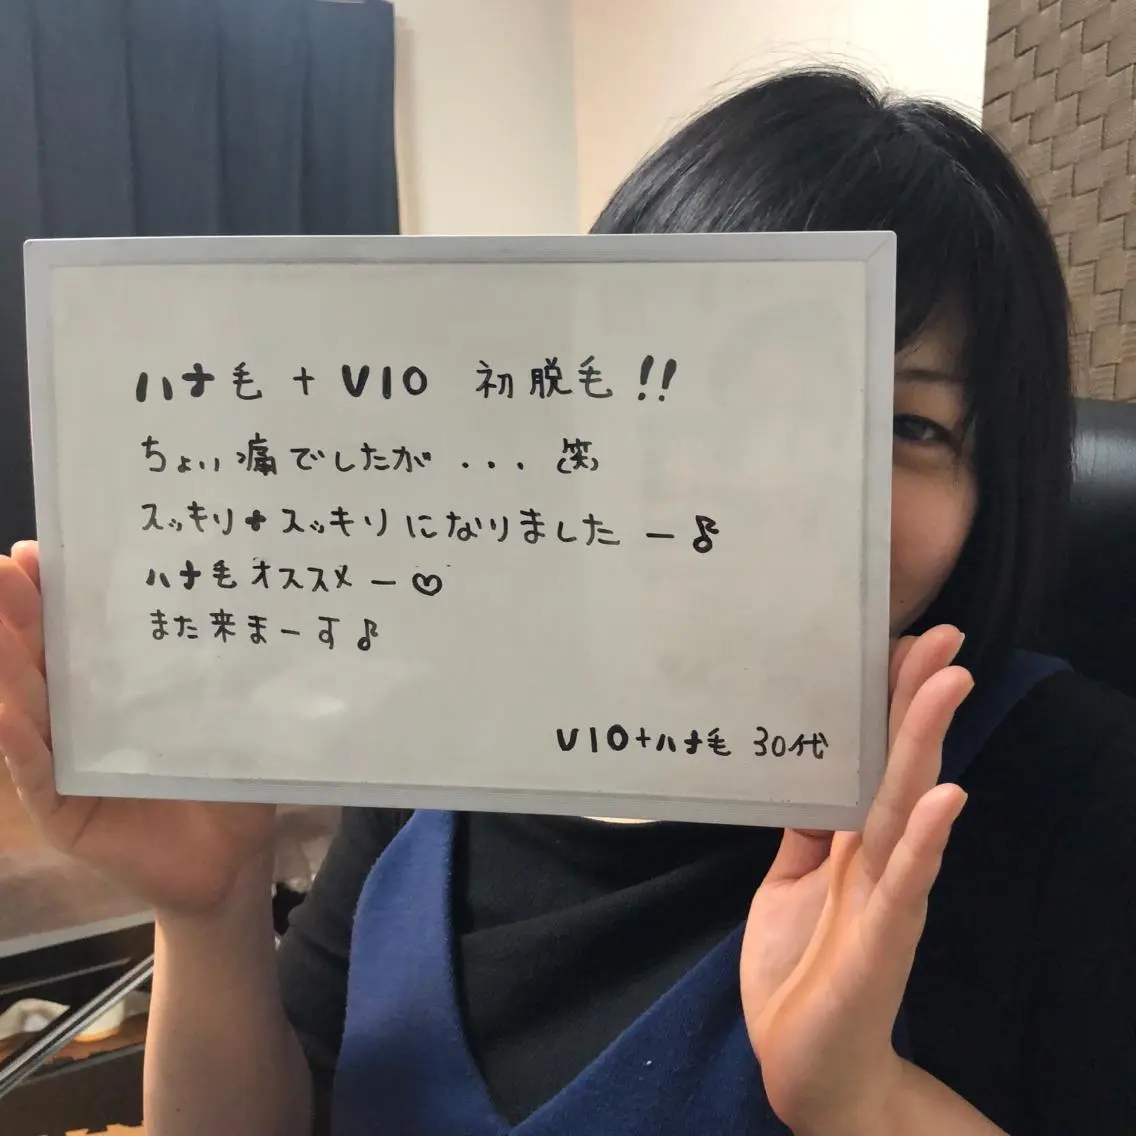 ハナ毛 + VIO 初脱毛!!
ちょい痛でしたが... (笑)
スッキリ+スッキリになりましたー♪
ハナ毛オススメー♡
また来まーす♪
VIO+ハナ毛 30代